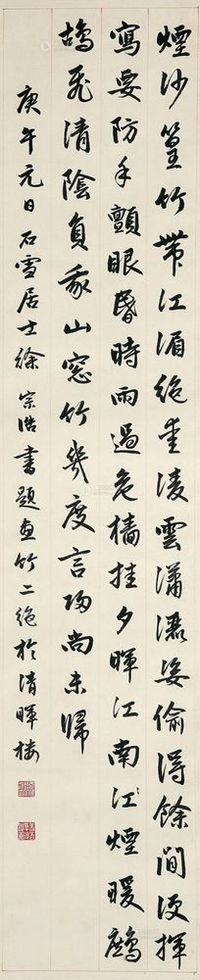 煙沙篁竹帶江湄絕愛凌雲瀟灑姿偷得餘閒便揮
寫要防手顫眼昏時雨過危檣挂夕暉江南江煙暖鷓
鴣飛清陰負我山窓竹幾度言歸尚未歸
庚午元日石雪居士徐宗浩書題畫竹二絕於清暉樓